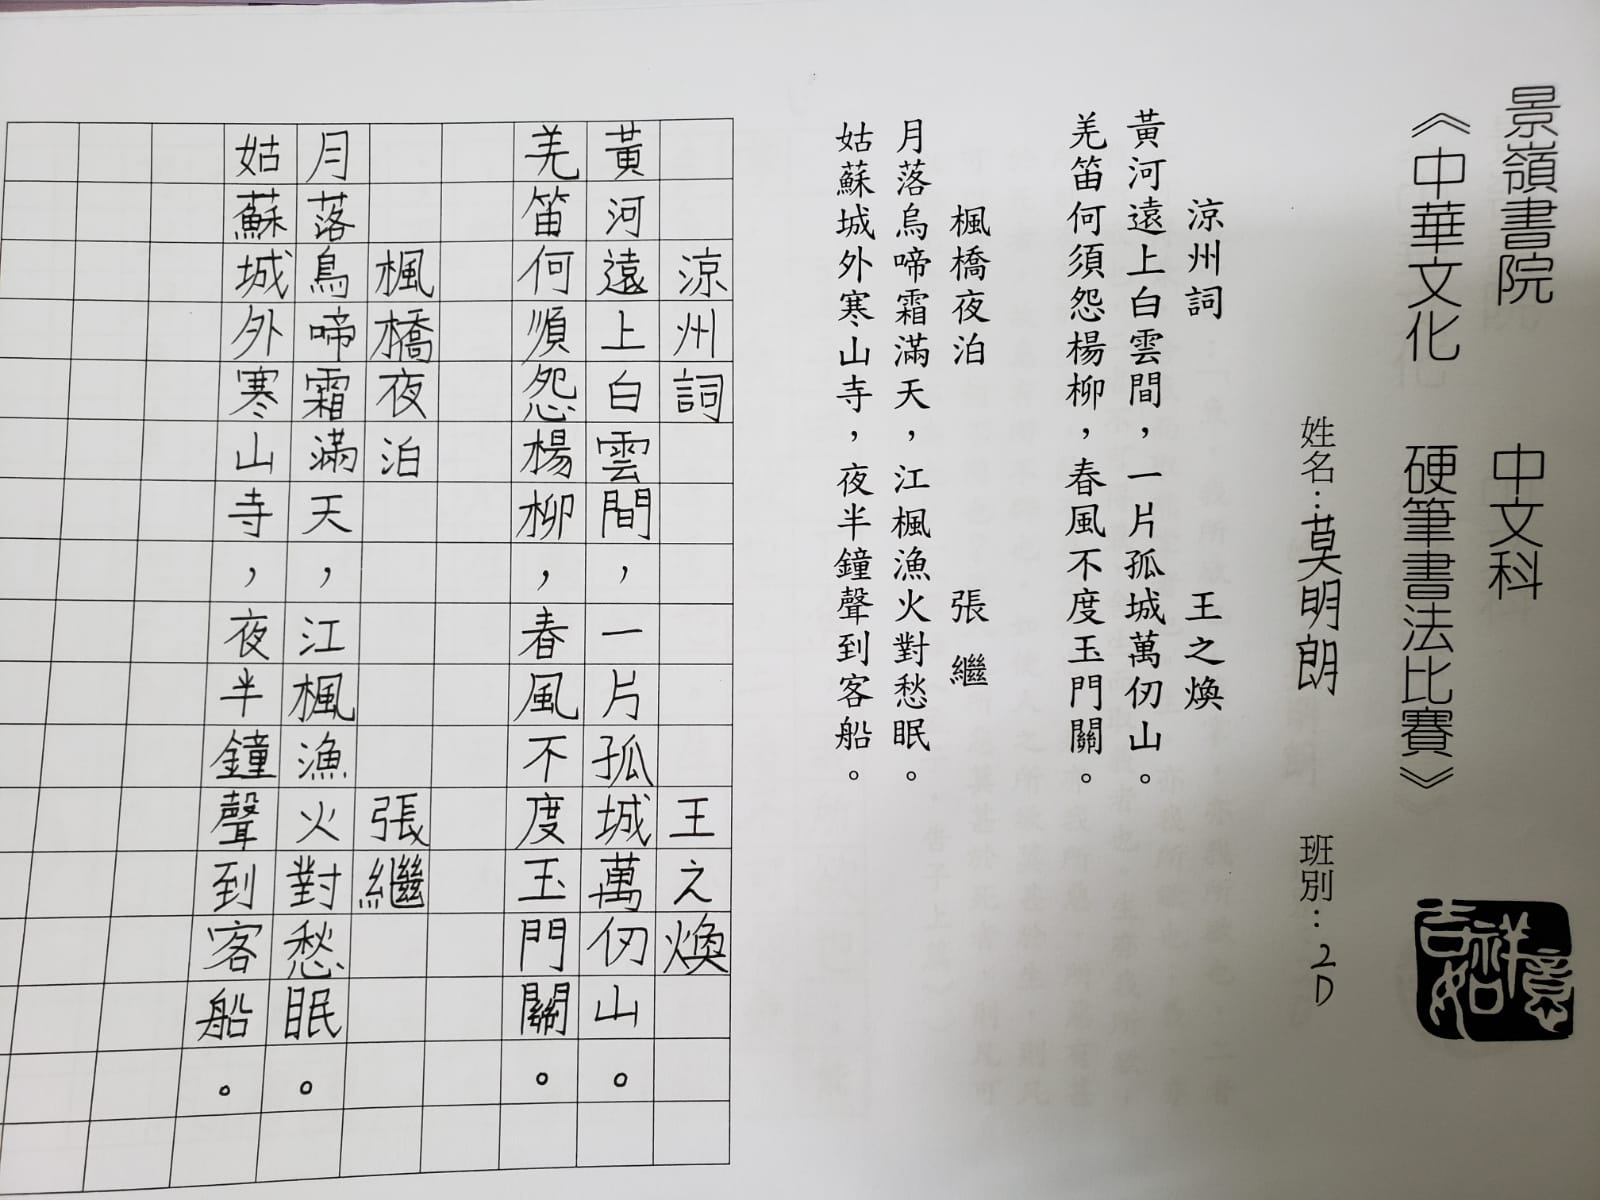 景嶺書院 中文科
《中華文化 硬筆書法比賽》
吉祥如意
姓名：莫明朗 班別：2D
涼州詞 王之煥
黃河遠上白雲間，一片孤城萬仞山。
羌笛何須怨楊柳，春風不度玉門關。
楓橋夜泊 張繼
月落烏啼霜滿天，江楓漁火對愁眠。
姑蘇城外寒山寺，夜半鐘聲到客船。
涼州詞 王之煥
黃河遠上白雲間，一片孤城萬仞山。
羌笛何順怨楊柳，春風不度玉門關。
楓橋夜泊 張繼
月落鳥啼霜滿天，江楓漁火對愁眠。
姑蘇城外寒山寺，夜半鐘聲到客船。